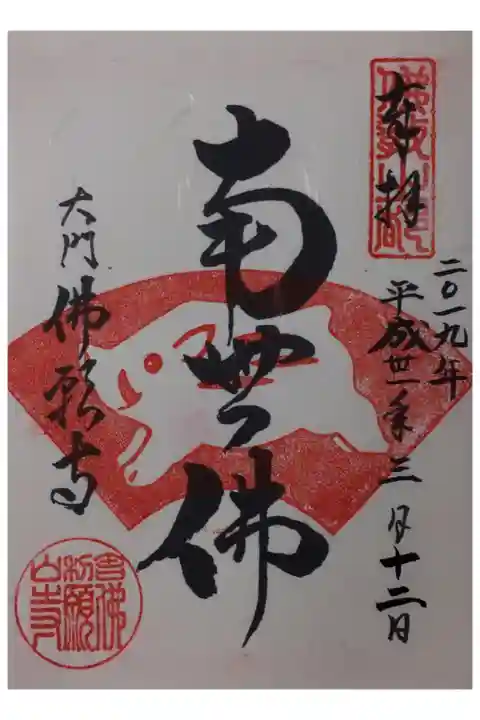 奉拝
二〇一九年
平成卅一年三月十二日
南無佛
大門佛願寺